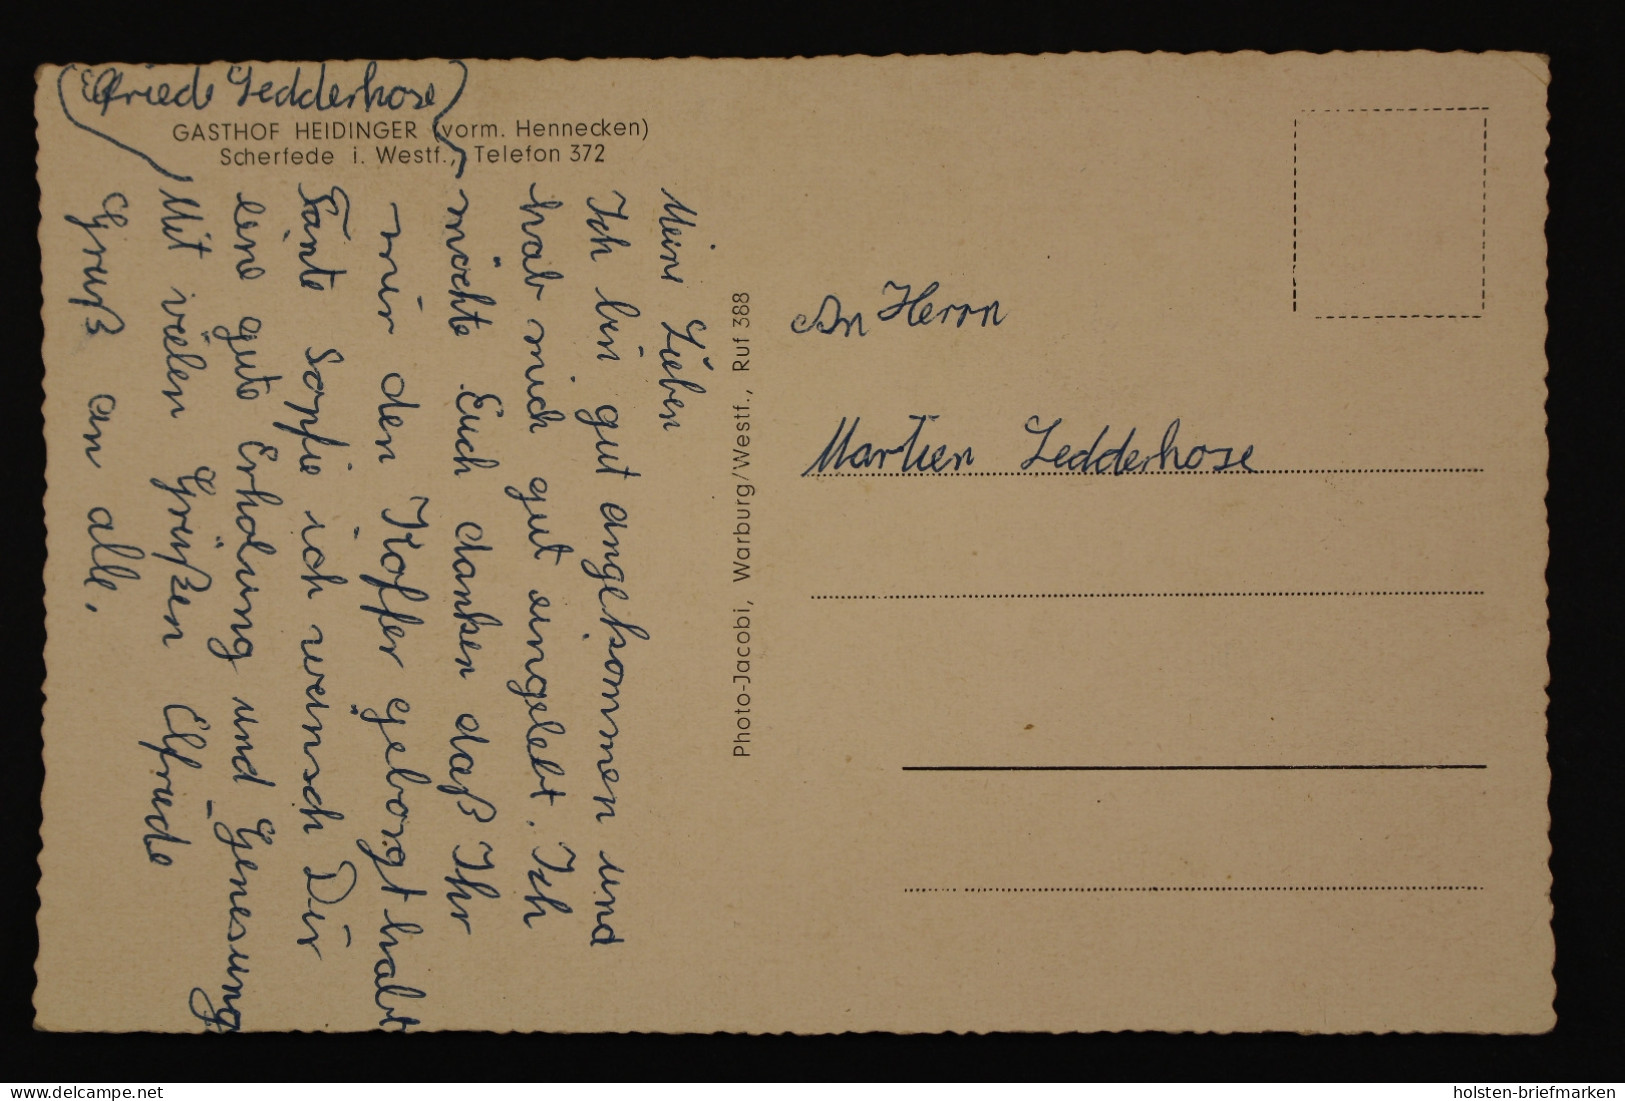 (Elfriede Ledderhose)
GASTHOF HEIDINGER (vorm. Hennecken)
Scherfede i. Westf., Telefon 372
Meine Lieben
Ich bin gut angekommen und
hab mich gut eingelebt. Ich
möchte Euch danken daß Ihr
mir den Koffer geborgt habt
Tante Sopfie ich wünsch Dir
eine gute Erholung und Genesung
Mit vielen Grüßen Elfriede
Gruß an alle.
Photo-Jacobi, Warburg/Westf., Ruf 388
An Herrn
Martien Ledderhose
delcampe.net
holsten-briefmarken